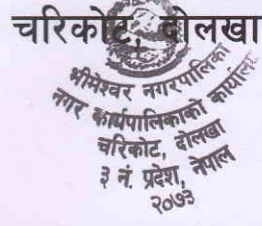 चरिकोट, दोलखा
भीमेश्वर नगरपालिका
नगर कार्यपालिकाको कार्यालय
चरिकोट, दोलखा
३ नं. प्रदेश, नेपाल
२०७३